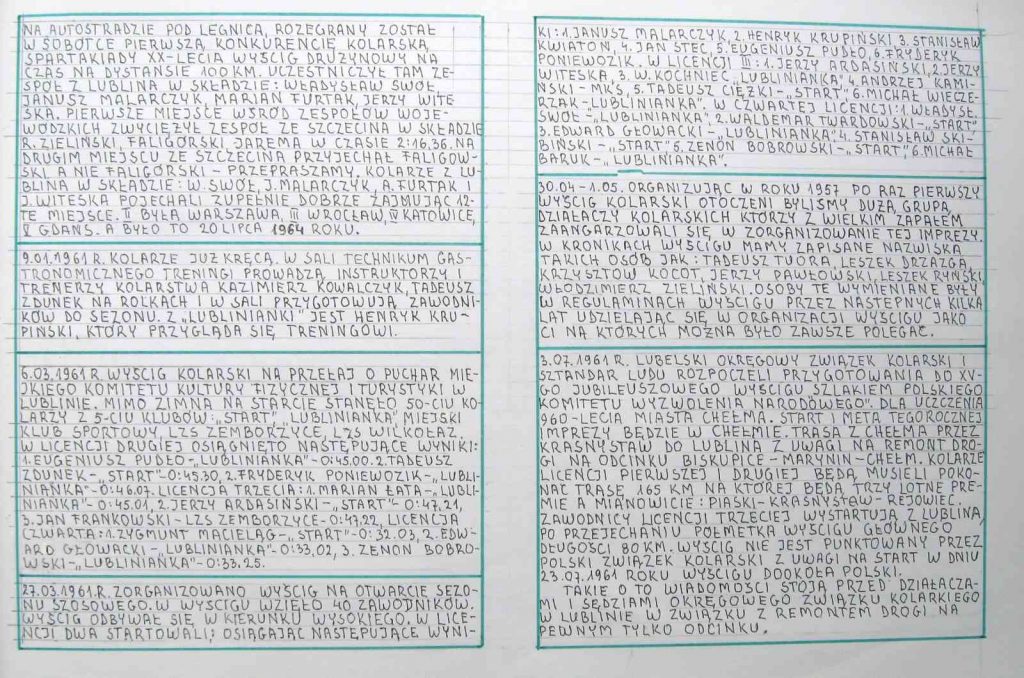 NA AUTOSTRADZIE POD LEGNICĄ, ROZEGRANY ZOSTAŁ
W SOBÓTCE PIERWSZĄ, KONKURENCJE KOLARSKĄ,
SPARTAKIADY XX-LECIA WYŚCIG DRUŻYNOWY NA
CZAS NA DYSTANSIE 100 KM. UCZESTNICZYŁ TAM ZE-
SPÓŁ Z LUBLINA W SKŁADZIE: WŁADYSŁAW SWÓŁ,
JANUSZ MALARCZYK, MARIAN FURTAK, JERZY WITE
SKA. PIERWSZE MIEJSCE WŚRÓD ZESPOŁÓW WOJE-
WÓDZKICH ZWYCIĘŻYŁ ZESPÓŁ ZE SZCZECINA W SKŁADZIE
R. ZIELIŃSKI, FALIGÓRSKI, JAREMA W CZASIE 2:16.36. NA
DRUGIM MIEJSCU ZE SZCZECINA PRZYJECHAŁ FALIGOW-
SKI, A NIE FALIGÓRSKI - PRZEPRASZAMY. KOLARZE Z LU-
BLINA W SKŁADZIE: W. SWÓŁ, J. MALARCZYK, A. FURTAK I
J. WITESKA POJECHALI ZUPEŁNIE DOBRZE ZAJMUJĄC 12-
TE MIEJSCE. II BYŁA WARSZAWA, III WROCŁAW, IV KATOWICE,
V GDAŃS. A BYŁO TO 20 LIPCA 1964 ROKU.
9.01.1961 R. KOLARZE JUŻ KRĘCĄ. W SALI TECHNIKUM GAS-
TRONOMICZNEGO TRENINGI PROWADZĄ, INSTRUKTORZY I
TRENERZY KOLARSTWA KAZIMIERZ KOWALCZYK, TADEUSZ
ZDUNEK NA ROLKACH I W SALI PRZYGOTOWUJĄ, ZAWODNI-
KÓW DO SEZONU. Z „LUBLINIANKI" JEST HENRYK KRU-
PIŃSKI, KTÓRY PRZYGLĄDA SIĘ TRENINGOWI.
6.03.1961 R. WYŚCIG KOLARSKI NA PRZEŁAJ O PUCHAR MIE-
JKIEGO KOMITETU KULTURY FIZYCZNEJ I TURYSTYKI W
LUBLINIE. MIMO ZIMNA NA STARCIE STANĘŁO 50-CIU KO-
LARZY Z 5-CIU KLUBÓW: „START", „LUBLINIANKA", MIEJSKI
KLUB SPORTOWY, LZS ZEMBORZYCE, LZS WILKOŁAZ.
W LICENCJI DRUGIEJ OSIĄGNIĘTO NASTĘPUJĄCE WYNIKI:
1. EUGENIUSZ PUDŁO-„LUBLINIANKA"-0:45.00. 2. TADEUSZ
ZDUNEK-„START"-0:45.30, 2. FRYDERYK PONIEWOZIK-„LUBLI-
NIANKA"-0:46.07. LICENCJA TRZECIA: 1. MARIAN ŁATA-„LUBLI-
NIANKA"-0:45.01, 2. JERZY ARDASIŃSKI-„START"-0:47.21,
3. JAN FRANKOWSKI-LZS ZEMBORZYCE-0:47.22, LICENCJA
CZWARTA: 1. ZYGMUNT MACIELĄG-„START"-0:32.03, 2. EDW-
ARD GŁOWACKI-„LUBLINIANKA"-0:33.02, 3. ZENON BOBRO-
WSKI-„LUBLINIANKA"-0:33.25.
27.03.1961 R. ZORGANIZOWANO WYŚCIG NA OTWARCIE SEZO-
NU SZOSOWEGO. W WYŚCIGU WZIĘŁO 40 ZAWODNIKÓW.
WYŚCIG ODBYWAŁ SIĘ W KIERUNKU WYSOKIEGO. W LICE-
NCJI DWA STARTOWALI; OSIĄGAJĄC NASTĘPUJĄCE WYNI-
KI: 1. JANUSZ MALARCZYK, 2. HENRYK KRUPIŃSKI, 3. STANISŁAW
KWIATOŃ, 4. JAN STEC, 5. EUGENIUSZ PUDŁO, 6. FRYDERYK
PONIEWOZIK. W LICENCJI III: 1. JERZY ARDASIŃSKI, 2. JERZY
WITESKA, 3. W. KOCHNIEC „LUBLINIANKA", 4. ANDRZEJ KAMI-
ŃSKI-MKS, 5. TADEUSZ CIĘŻKI-„START", 6. MICHAŁ WIECZE-
RZAK-„LUBLINIANKA". W CZWARTEJ LICENCJI: 1. WŁADYSŁ.
SWÓŁ-„LUBLINIANKA", 2. WALDEMAR TWARDOWSKI-„START",
3. EDWARD GŁOWACKI-„LUBLINIANKA", 4. STANISŁAW SKI-
BIŃSKI-„START", 5. ZENON BOBROWSKI-„START", 6. MICHAŁ
BARUK-„LUBLINIANKA".
30.04-1.05. ORGANIZUJĄC W ROKU 1957 PO RAZ PIERWSZY
WYŚCIG KOLARSKI OTOCZENI BYLIŚMY DUŻĄ, GRUPĄ,
DZIAŁACZY KOLARSKICH KTÓRZY Z WIELKIM ZAPAŁEM
ZAANGARZOWALI SIĘ, W ZORGANIZOWANIE TEJ IMPREZY.
W KRONIKACH WYŚCIGU MAMY ZAPISANE NAZWISKA
TAKICH OSÓB JAK: TADEUSZ TUORA, LESZEK DRZAZGA,
KRZYSZTOW KOCOT, JERZY PAWŁOWSKI, LESZEK RYŃSKI,
WŁODZIMIERZ ZIELIŃSKI. OSOBY TE WYMIENIANE BYŁY
W REGULAMINACH WYŚCIGU PRZEZ NASTĘPNYCH KILKA
LAT UDZIELAJĄC SIĘ W ORGANIZACJI WYŚCIGU JAKO
CI NA KTÓRYCH MOŻNA BYŁO ZAWSZE POLEGAĆ.
3.07.1961 R. LUBELSKI OKRĘGOWY ZWIĄZEK KOLARSKI I
SZTANDAR LUDU ROZPOCZELI PRZYGOTOWANIA DO XV-
GO JUBILEUSZOWEGO WYŚCIGU SZLAKIEM POLSKIEGO
KOMITETU WYZWOLENIA NARODOWEGO". DLA UCZCZENIA
960-LECIA MIASTA CHEŁMA. START I META TEGOROCZNEJ
IMPREZY BĘDZIE W CHEŁMIE. TRASA Z CHEŁMA PRZEZ
KRASNYSTAW DO LUBLINA Z UWAGI NA REMONT DRO-
GI NA ODCINKU BISKUPICE-MARYNIN-CHEŁM. KOLARZE
LICENCJI PIERWSZEJ I DRUGIEJ BĘDĄ MUSIELI POKO-
NAĆ TRASĘ 165 KM NA KTÓREJ BĘDĄ TRZY LOTNE PRE-
MIE A MIANOWICIE: PIASKI-KRASNYSTAW-REJOWIEC.
ZAWODNICY LICENCJI TRZECIEJ WYSTARTUJĄ Z LUBLINA,
PO PRZEJECHANIU PÓŁMETKA WYŚCIGU GŁÓWNEGO
DŁUGOŚCI 80 KM. WYŚCIG NIE JEST PUNKTOWANY PRZEZ
POLSKI ZWIĄZEK KOLARSKI Z UWAGI NA START W DNIU
23.07.1961 ROKU WYŚCIGU DOOKOŁA POLSKI.
TAKIE O TO WIADOMOŚCI STOJĄ PRZED DZIAŁACZA-
MI I SĘDZIAMI OKRĘGOWEGO ZWIĄZKU KOLARKIEGO
W LUBLINIE W ZWIĄZKU Z REMONTEM DROGI NA
PEWNYM TYLKO ODCINKU.